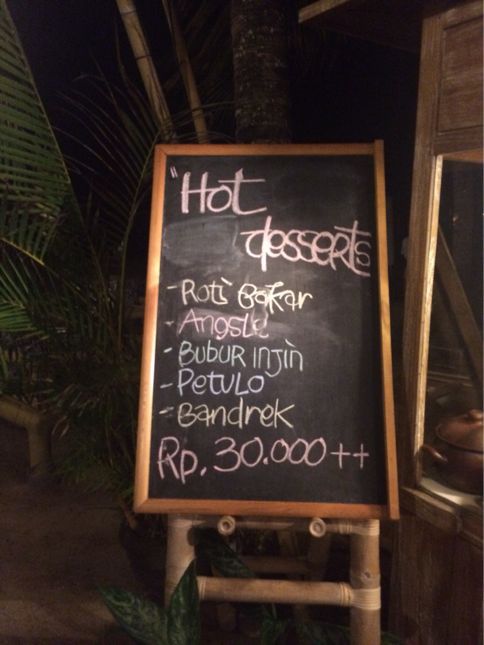 "Hot
desserts
- Roti Bakar
- Angsle
- Bubur injin
- Petulo
- Bandrek
Rp. 30.000++